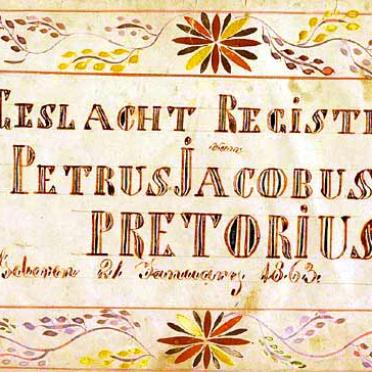 GESLACHT REGISTE
van
PETRUS JACOBUS
PRETORIUS
Geboren 21 January 1863.